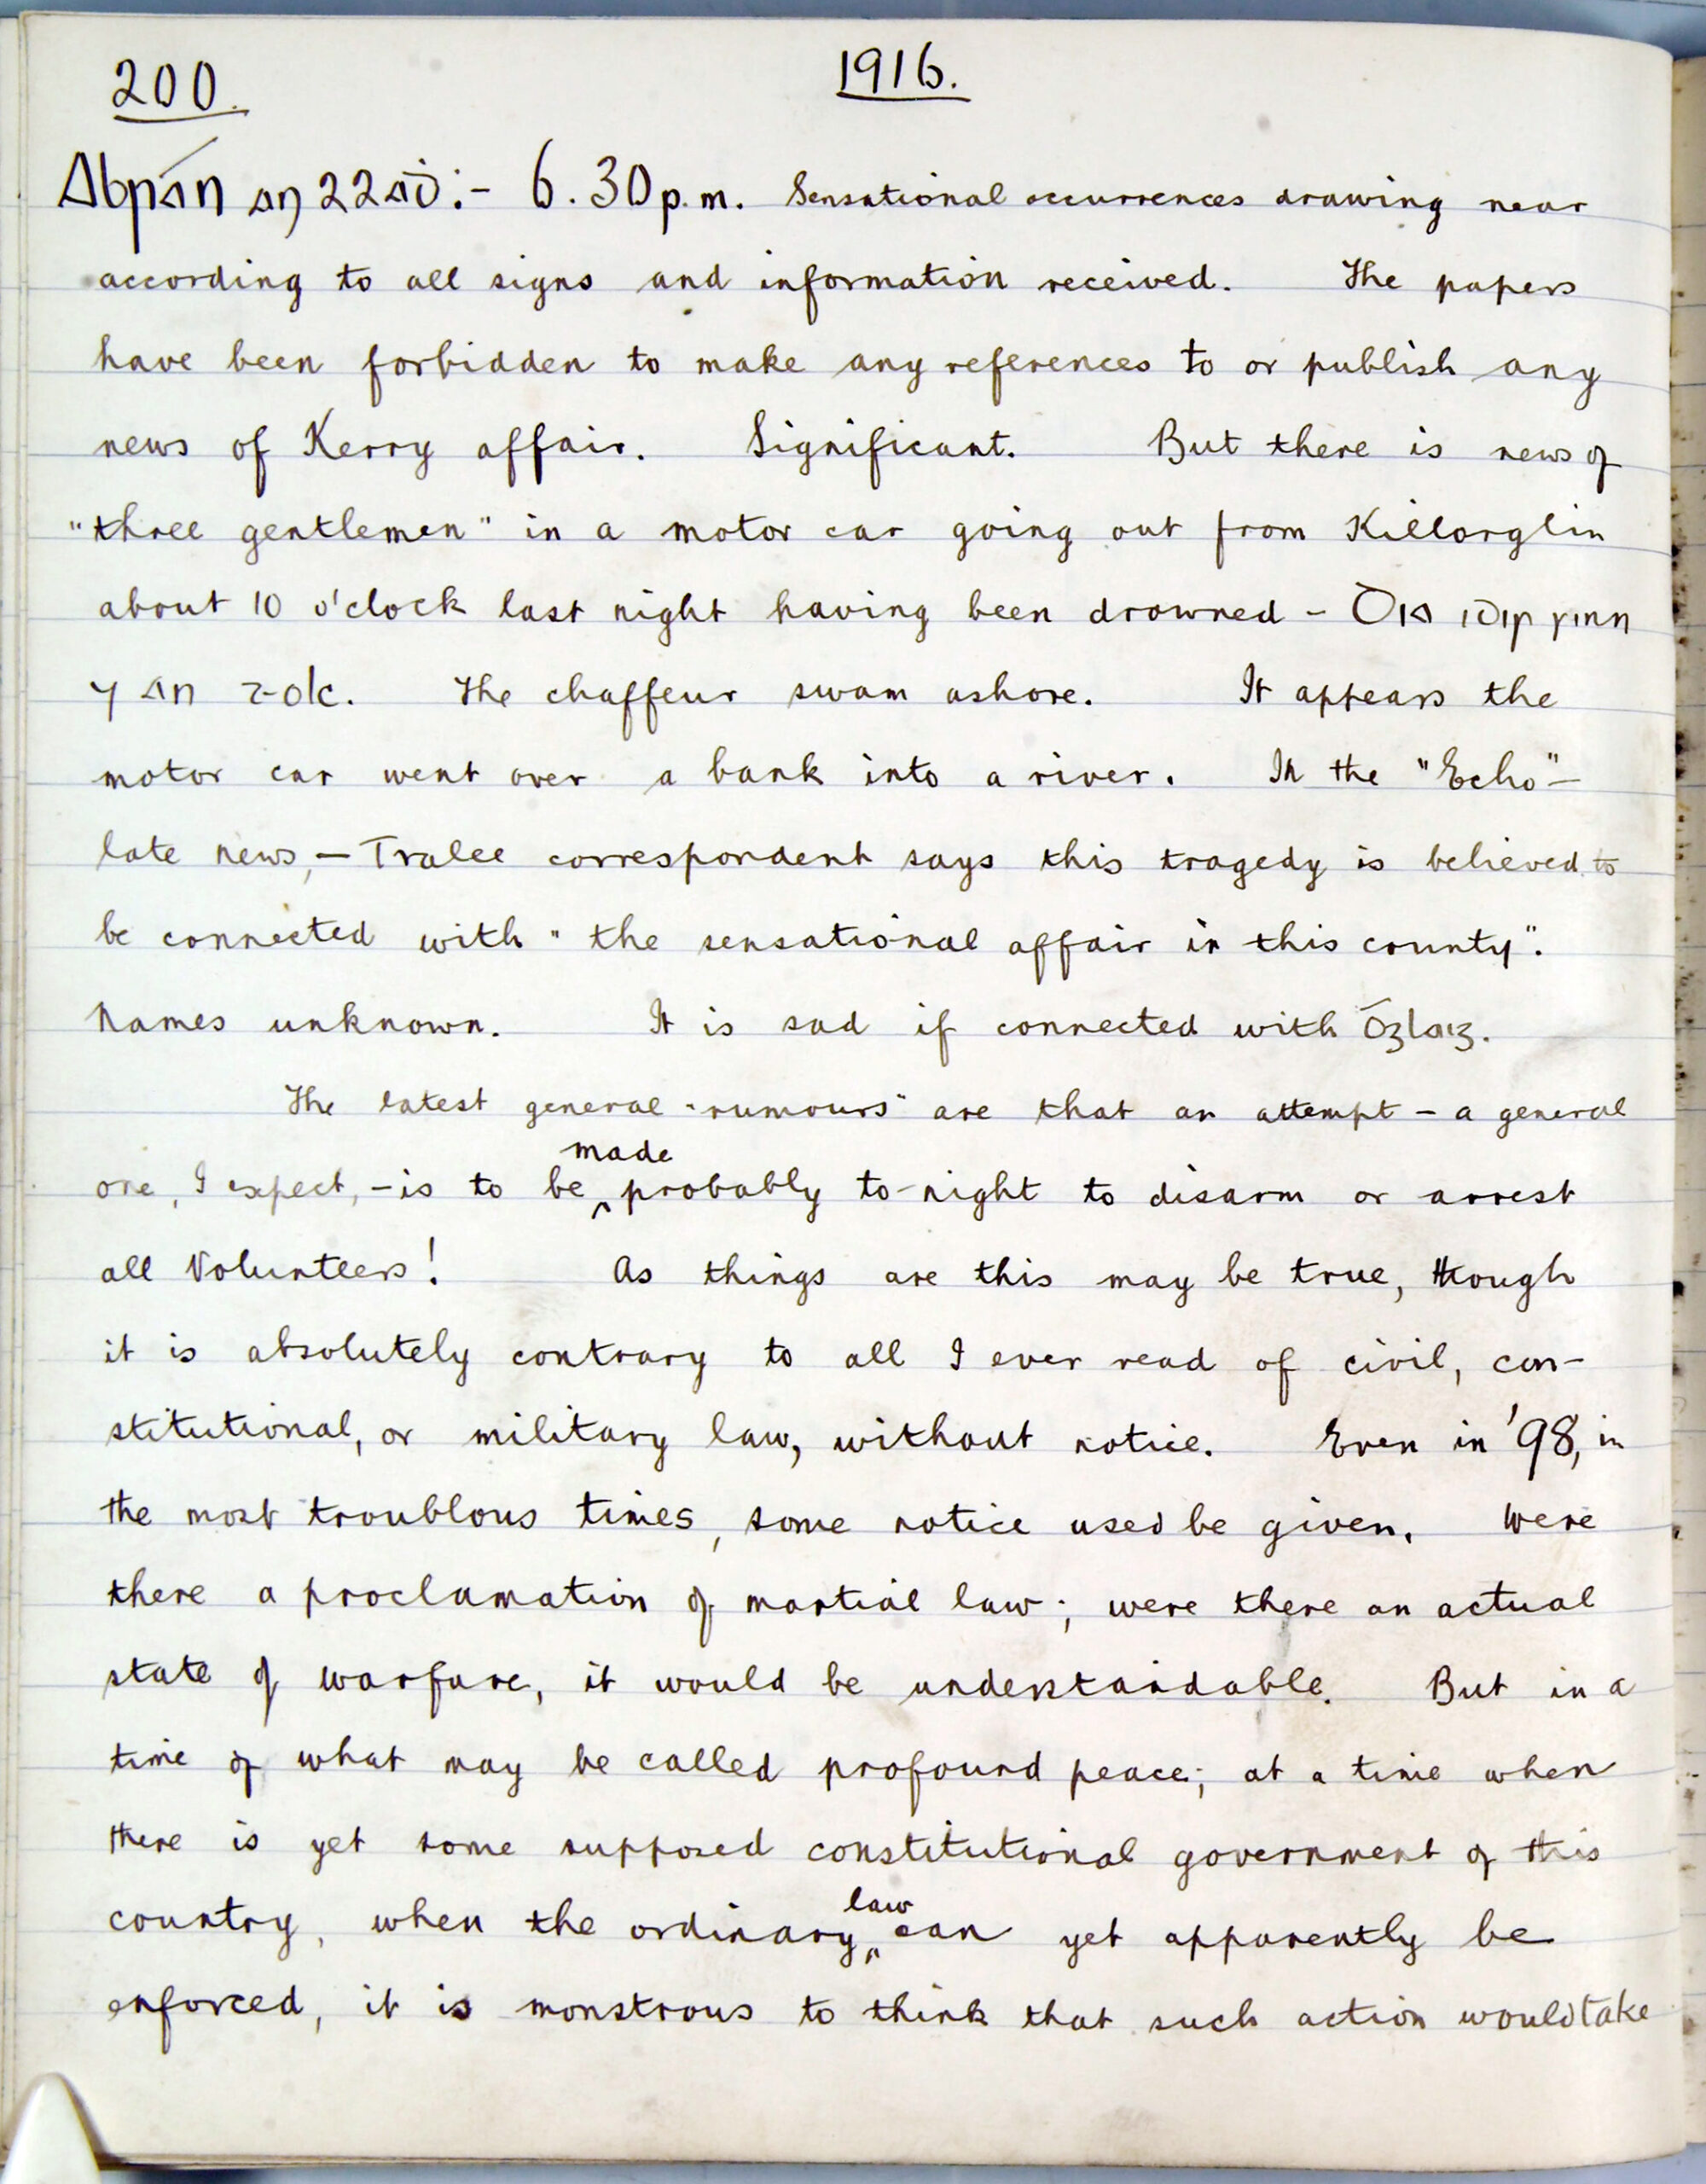 200.
1916.
Abrán an 22aḋ:- 6.30 p.m. Sensational occurrences drawing near
according to all signs and information received. The papers
have been forbidden to make any references to or publish any
news of Kerry affair. Significant. But there is news of
"three gentlemen" in a motor car going out from Killorglin
about 10 o'clock last night having been drowned - Dia idir sinn
⁊ an t-olc. The chaffeur swam ashore. It appears the
motor car went over a bank into a river. In the "Echo" -
late news, - Tralee correspondent says this tragedy is believed to
be connected with "the sensational affair in this county".
Names unknown. It is sad if connected with
The latest general "rumours" are that an attempt - a general
one, I expect, - is to be made probably to-night to disarm or arrest
all Volunteers! As things are this may be true, though
it is absolutely contrary to all I ever read of civil, con-
stitutional, or military law, without notice. Even in '98, in
the most troublous times, some notice used be given. Were
there a proclamation of martial law; were there an actual
state of warfare, it would be understandable. But in a
time of what may be called profound peace; at a time when
there is yet some supposed constitutional government of this
country, when the ordinary law can yet apparently be
enforced, it is monstrous to think that such action would take